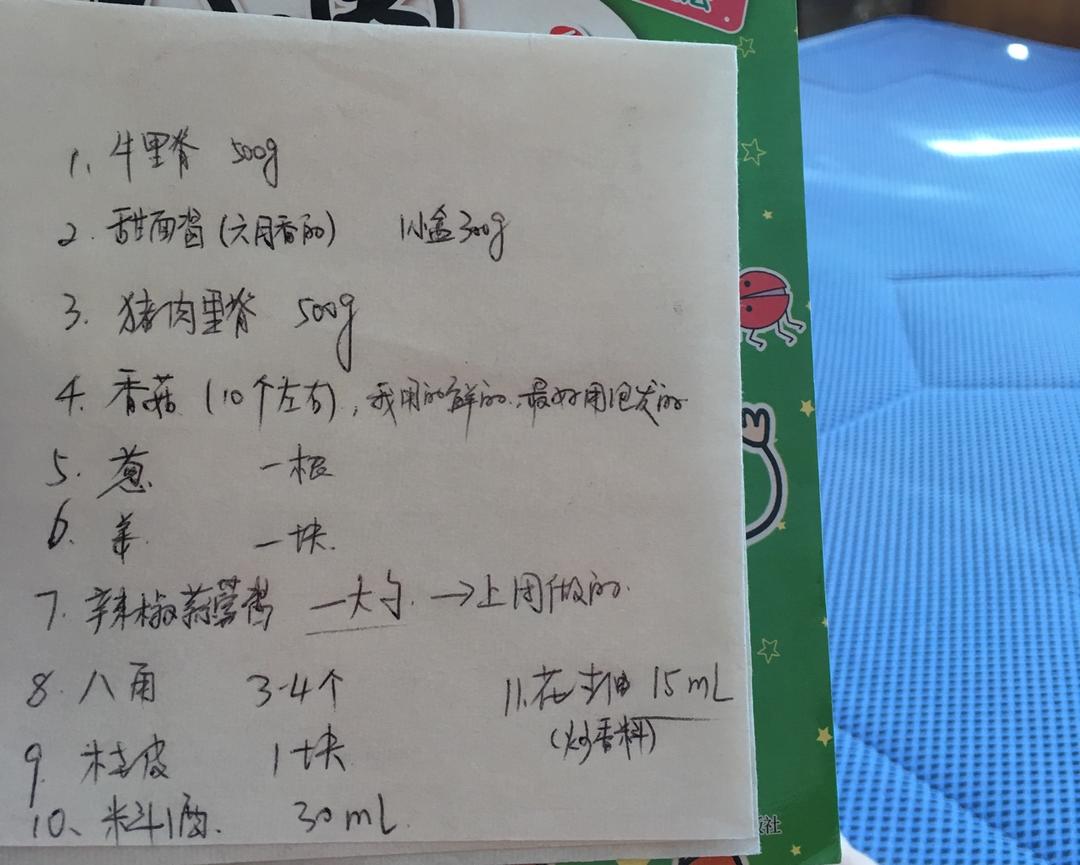 1. 牛里脊 500g
2. 甜面酱(六月香的) 1小盒300g
3. 猪肉里脊 500g
4. 香菇 (10个左右), 我用的鲜的, 最好用泡发的
5. 葱 一根
6. 姜 一块.
7. 辣椒蒜蓉酱 一大勺. →上周做的.
8. 八角 3-4个
11. 花生油 15mL
(炒香料)
9. 桂皮 1块
10、料酒. 30mL.
社